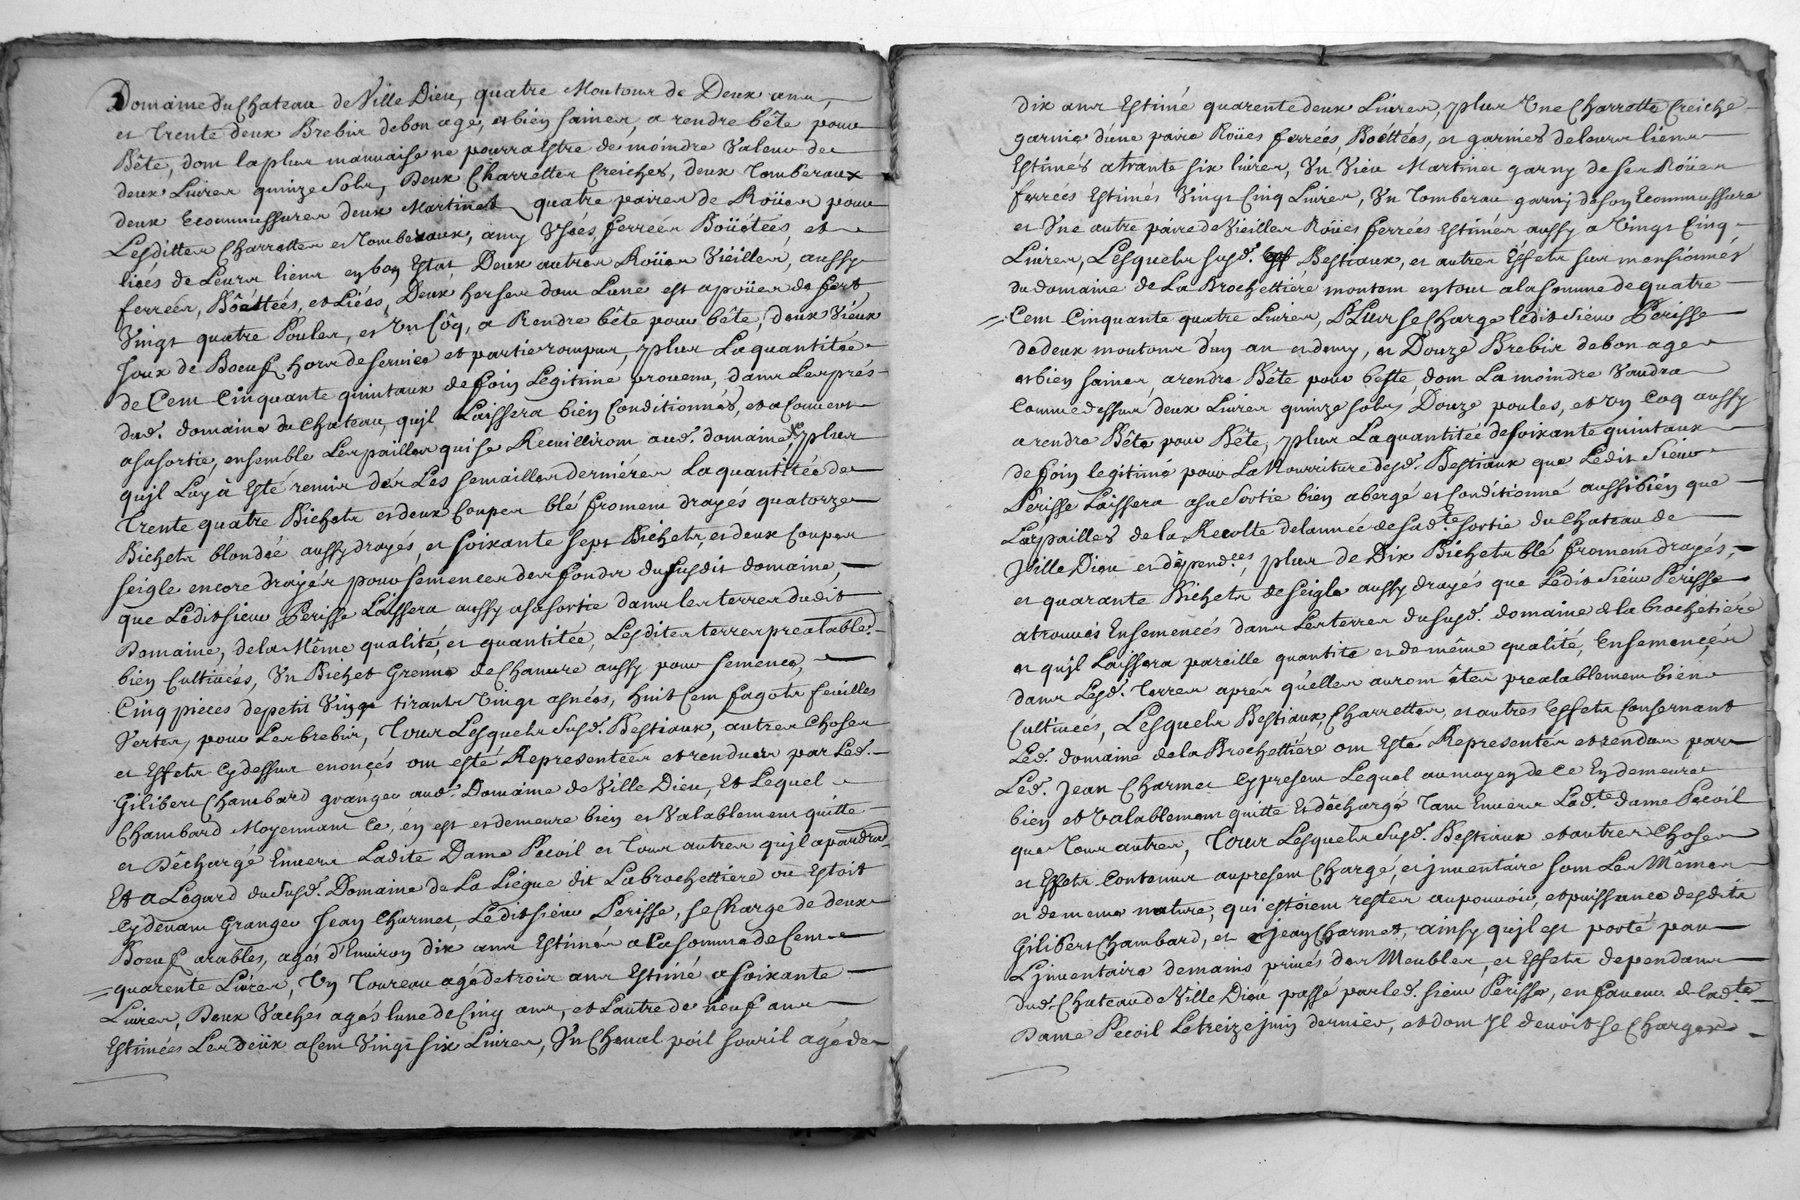 Domaine du Chateau de Ville Dieu, quatre Moutons de Deux ans,
et Trente deux Brebis de bon age, et bien saines, a rendre bête pour
Bête, dont la plus mauvaise ne pourra Estre de moindre Valeur de
deux Livres quinze Sols, Deux Charrettes Creiches, deux Tomberaux
deux Ecommussures deux Martinets quatre paires de Roües pour
Lesdittes Charrettes et Tomberaux, a my Usées ferrées Boüétées, et
liées de Leurs liens en bon Estat, Deux autres Roües Vieilles, aussy
ferrées, Boëttées, et Liées, Deux herses dont L'une est a poües de fert,
Vingt quatre Poules, et Un Côq, a Rendre bête pour bête, deux Vieux
Joux de Boeufs hors de service et partie rompus, plus La quantitée
de Cent Cinquante quintaux de foin Legitime provenu, dans Les prés
dud. domaine du Chateau, qu'il Laissera bien Conditionnés, et a Couvert
a sa sortie, ensemble Les pailles qui se Recuilliront aud. domaine, plus
qu'il Luy à Esté remis dès Les semailles dernières La quantitée de
Trente quatre Bichets et deux Coupes blé froment drayés quatorze
Bichets blondée aussy drayés, et soixante sept Bichets, et deux Coupes
seigle encore drayés pour semences des fonds du susdit domaine,
que Ledit sieur Perisse Laissera aussy a sa sortie dans les terres dudit
Domaine, de la Même qualité, et quantitée, Lesdites terres préalable.
bien Cultivées, Un Bichet Grenne de Chanvre aussy pour semence,
Cinq pieces de petit Vingt tirants Vingt asnées, huit Cent fagots feuilles
Vertes, pour Les brebis, Tous Lesquels susd. Bestiaux, autres choses
et Effets Cy dessus enonçés ont esté Representées et rendues par Led.
Gilibert Chambard granger aud. Domaine de Ville Dieu, Et Lequel
Chambard Moyennant Ce, en est et demeure bien et Valablement quitte
et Dêchargé Envers Ladite Dame Pecoil et Tous autres qu'il apardra.
Et a L'égard du susd. Domaine de La Liégue dit Labrochettiere où Estoit
Cy devant Granger Jean Charmet, Ledit sieur Perisse, se Charge de deux
Boeufs arables, agés d'Environ dix ans Estimés a La somme de Cent
quarente Livres, Un Toureau agé de trois ans Estimé a soixante
Livres, Deux Vaches agés l'une de Cinq ans, et L'autre de neuf ans,
Estimées Les deüx a Cent Vingt six Livres, Un Cheval poil souril agé de
dix ans Estimé quarente deux Livres, plus Une Charrette Creiche
garnie d'une paire Roües ferrées, Boettées, et garnies de leurs liens
Estimés a trante six livres, Un Vieu Martinet garny de ses Roües
ferrées Estimés Vingt Cinq Livres, Un Tomberau garny de son Ecommussure
et Une autre paire de Vieilles Roües ferrées Estimés aussy a Vingt Cinq
Livres, Lesquels susd. Bestiaux, et autres Effets sus mensionnés
du domaine de La Brochettiere montent en tout a la somme de quatre
Cent Cinquante quatre Livres, Plus se Charge ledit sieur Perisse
de deux moutons d'un an et demy, et Douze Brebis de bon age
et bien saines, a rendre Bête pour beste, dont La moindre Vaudra
Comme dessus deux Livres quinze sols, Douze poules, et Un Coq aussy
a rendre Bête pour Bête, plus La quantitée de soixante quintaux
de foin legitime pour La Nourriture desd. Bestiaux que Ledit Sieur
Perisse Laissera a sa Sortie bien abergé et Conditionné aussi bien que
Les pailles de la Recolte de l'année de sad.te sortie du chateau de
Ville Dieu et dépend.ces, plus de Dix Bichets blé froment drayés,
et quarante Bichets de seigle aussy drayés que Ledit Sieur Perisse
a trouvés Ensemencés dans Les terres du susd. domaine de la brochetiére
et qu'il Laissera pareille quantité et de même qualité, Ensemencées
dans Lesd. Terres après qu'elles auront êtes prealablement bien
Cultivées, Lesquels Bestiaux, Charrettes, et autres Effets Consernant
Led. domaine de la Brochettiére ont Esté Representés et rendus par
Led. Jean Charmet Cy present Lequel au moyen de Ce En demeure
bien et Valablement quitte Et déchargé Tant Envers Lad.te dame Pecoil
que Tous autres, Tous Lesquels susd. Bestiaux et autres choses
et Effets Contenus au present Chargé, et jnventaire sont Les Mêmes
et de meme nature, qui estoient restés au pouvoir, et puissance desdits
Gilibert Chambard, et Jean Charmet, ainsy qu'il est porté par
L'jnventaire de mains privés des Meubles, et Effets dependans
dud. Chateau de Ville Dieu passé par led. sieur Perisse, en faveur de lad.te
Dame Pecoil Le treize juin dernier, et dont Il devoit se Charger